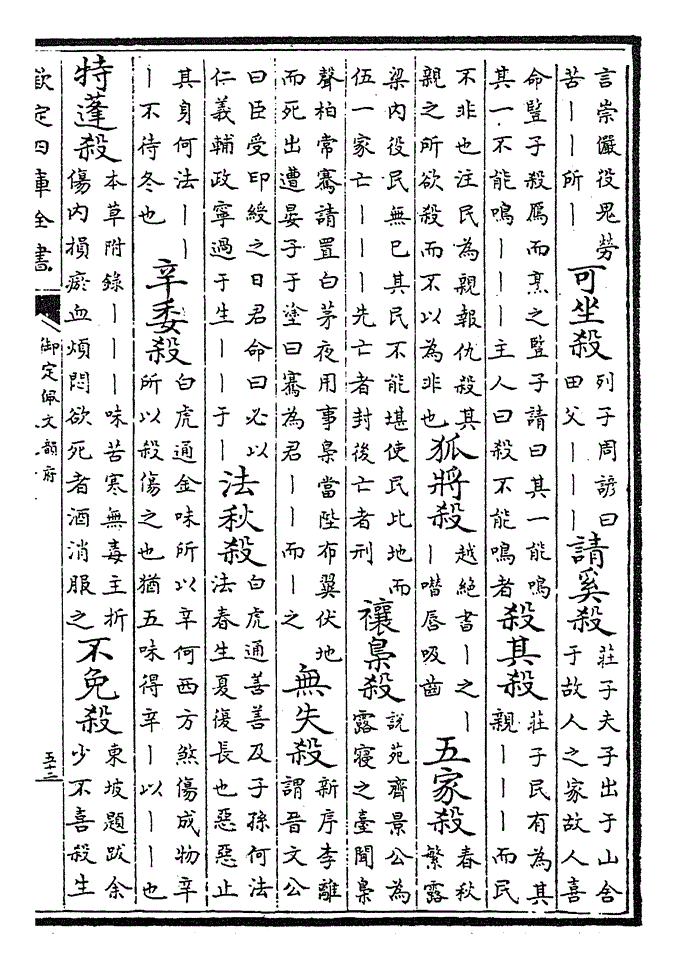 言崇儼役鬼勞
苦丨丨所丨
可坐殺
列子周諺曰
田父丨丨丨
請奚殺
莊子夫子出于山舍
于故人之家故人喜
命豎子殺鴈而烹之豎子請曰其一能鳴
其一不能鳴丨丨丨主人曰殺不能鳴者
殺其殺
莊子民有為其
親丨丨丨而民
不非也注民為親報仇殺其
親之所欲殺而不以為非也
狐將殺
越絕書丨之丨
丨噆唇吸齒
五家殺
春秋
繁露
梁內役民無已其民不能堪使民比地而
伍一家亡丨丨丨先亡者封後亡者刑
禳梟殺
說苑齊景公為
露寢之臺聞梟
聲柏常騫請置白茅夜用事梟當陛布翼伏地
而死出遭晏子于塗曰騫為君丨丨而丨之
無失殺
新序李離
謂晉文公
曰臣受印綬之日君命曰必以
仁義輔政寧過于生丨丨于丨
法秋殺
白虎通善善及子孫何法
法春生夏復長也惡惡止
其身何法丨丨
丨不待冬也
辛委殺
白虎通金味所以辛何西方煞傷成物辛
所以殺傷之也猶五味得辛丨以丨丨也
特蓬殺
本草附錄丨丨丨味苦寒無毒主折
傷內損瘀血煩悶欲死者酒消服之
不免殺
東坡題跋余
少不喜殺生
欽定四庫全書
御定佩文韻府
五十三